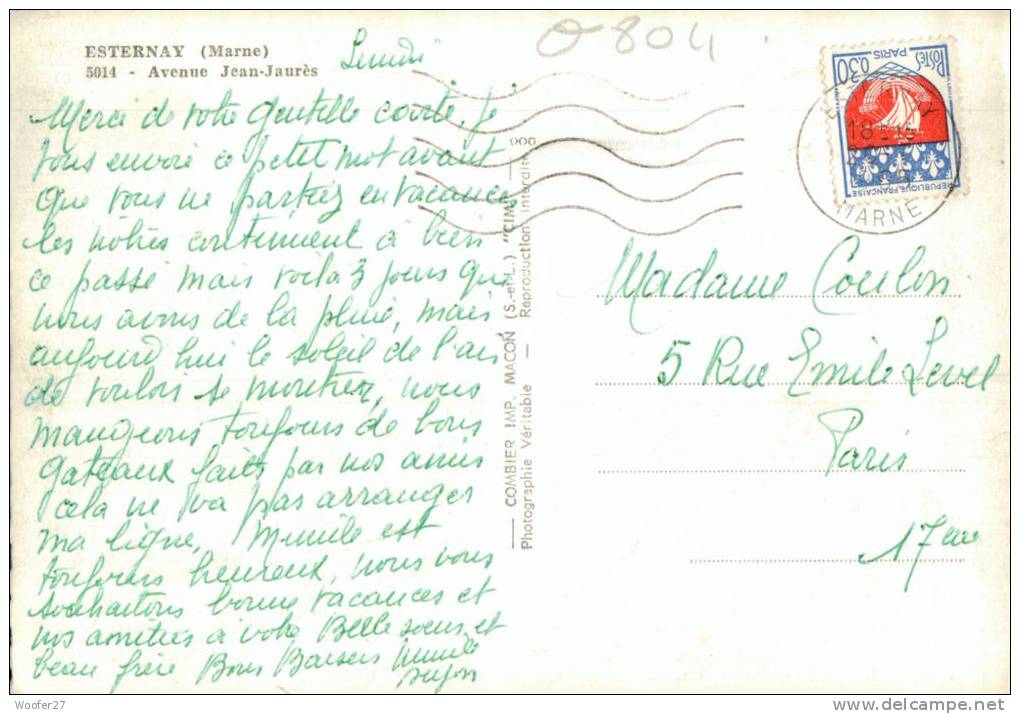 ESTERNAY (Marne)
5014 - Avenue Jean-Jaurès
Lundi
0804
Merci de votre gentille carte, je
vous envoie ce petit mot avant
que vous ne partiez en vacances
les notres continuent à bien
ce passé mais voila 3 jours que
nous avons de la pluie, mais
aujourd hui le soleil de l'air
de vouloir se montrer, nous
mangeons toujours de bons
gateaux faits par nos amis
cela ne va pas arranger
ma ligne, Mimile est
toujours heureux, nous vous
souhaitons bonne vacances et
nos amitiés à votre Belle soeur et
beau frère Bons Baisers Mimile
Suzon
COMBIER IMP. MACON (S.-et-L.) "CIM"
Photographie Véritable — Reproduction Interdite
POSTES
PARIS
0,30
REPUBLIQUE FRANCAISE
18
MARNE
Madame Coulon
5 Rue Emile Level
Paris
17eme
Woofer27